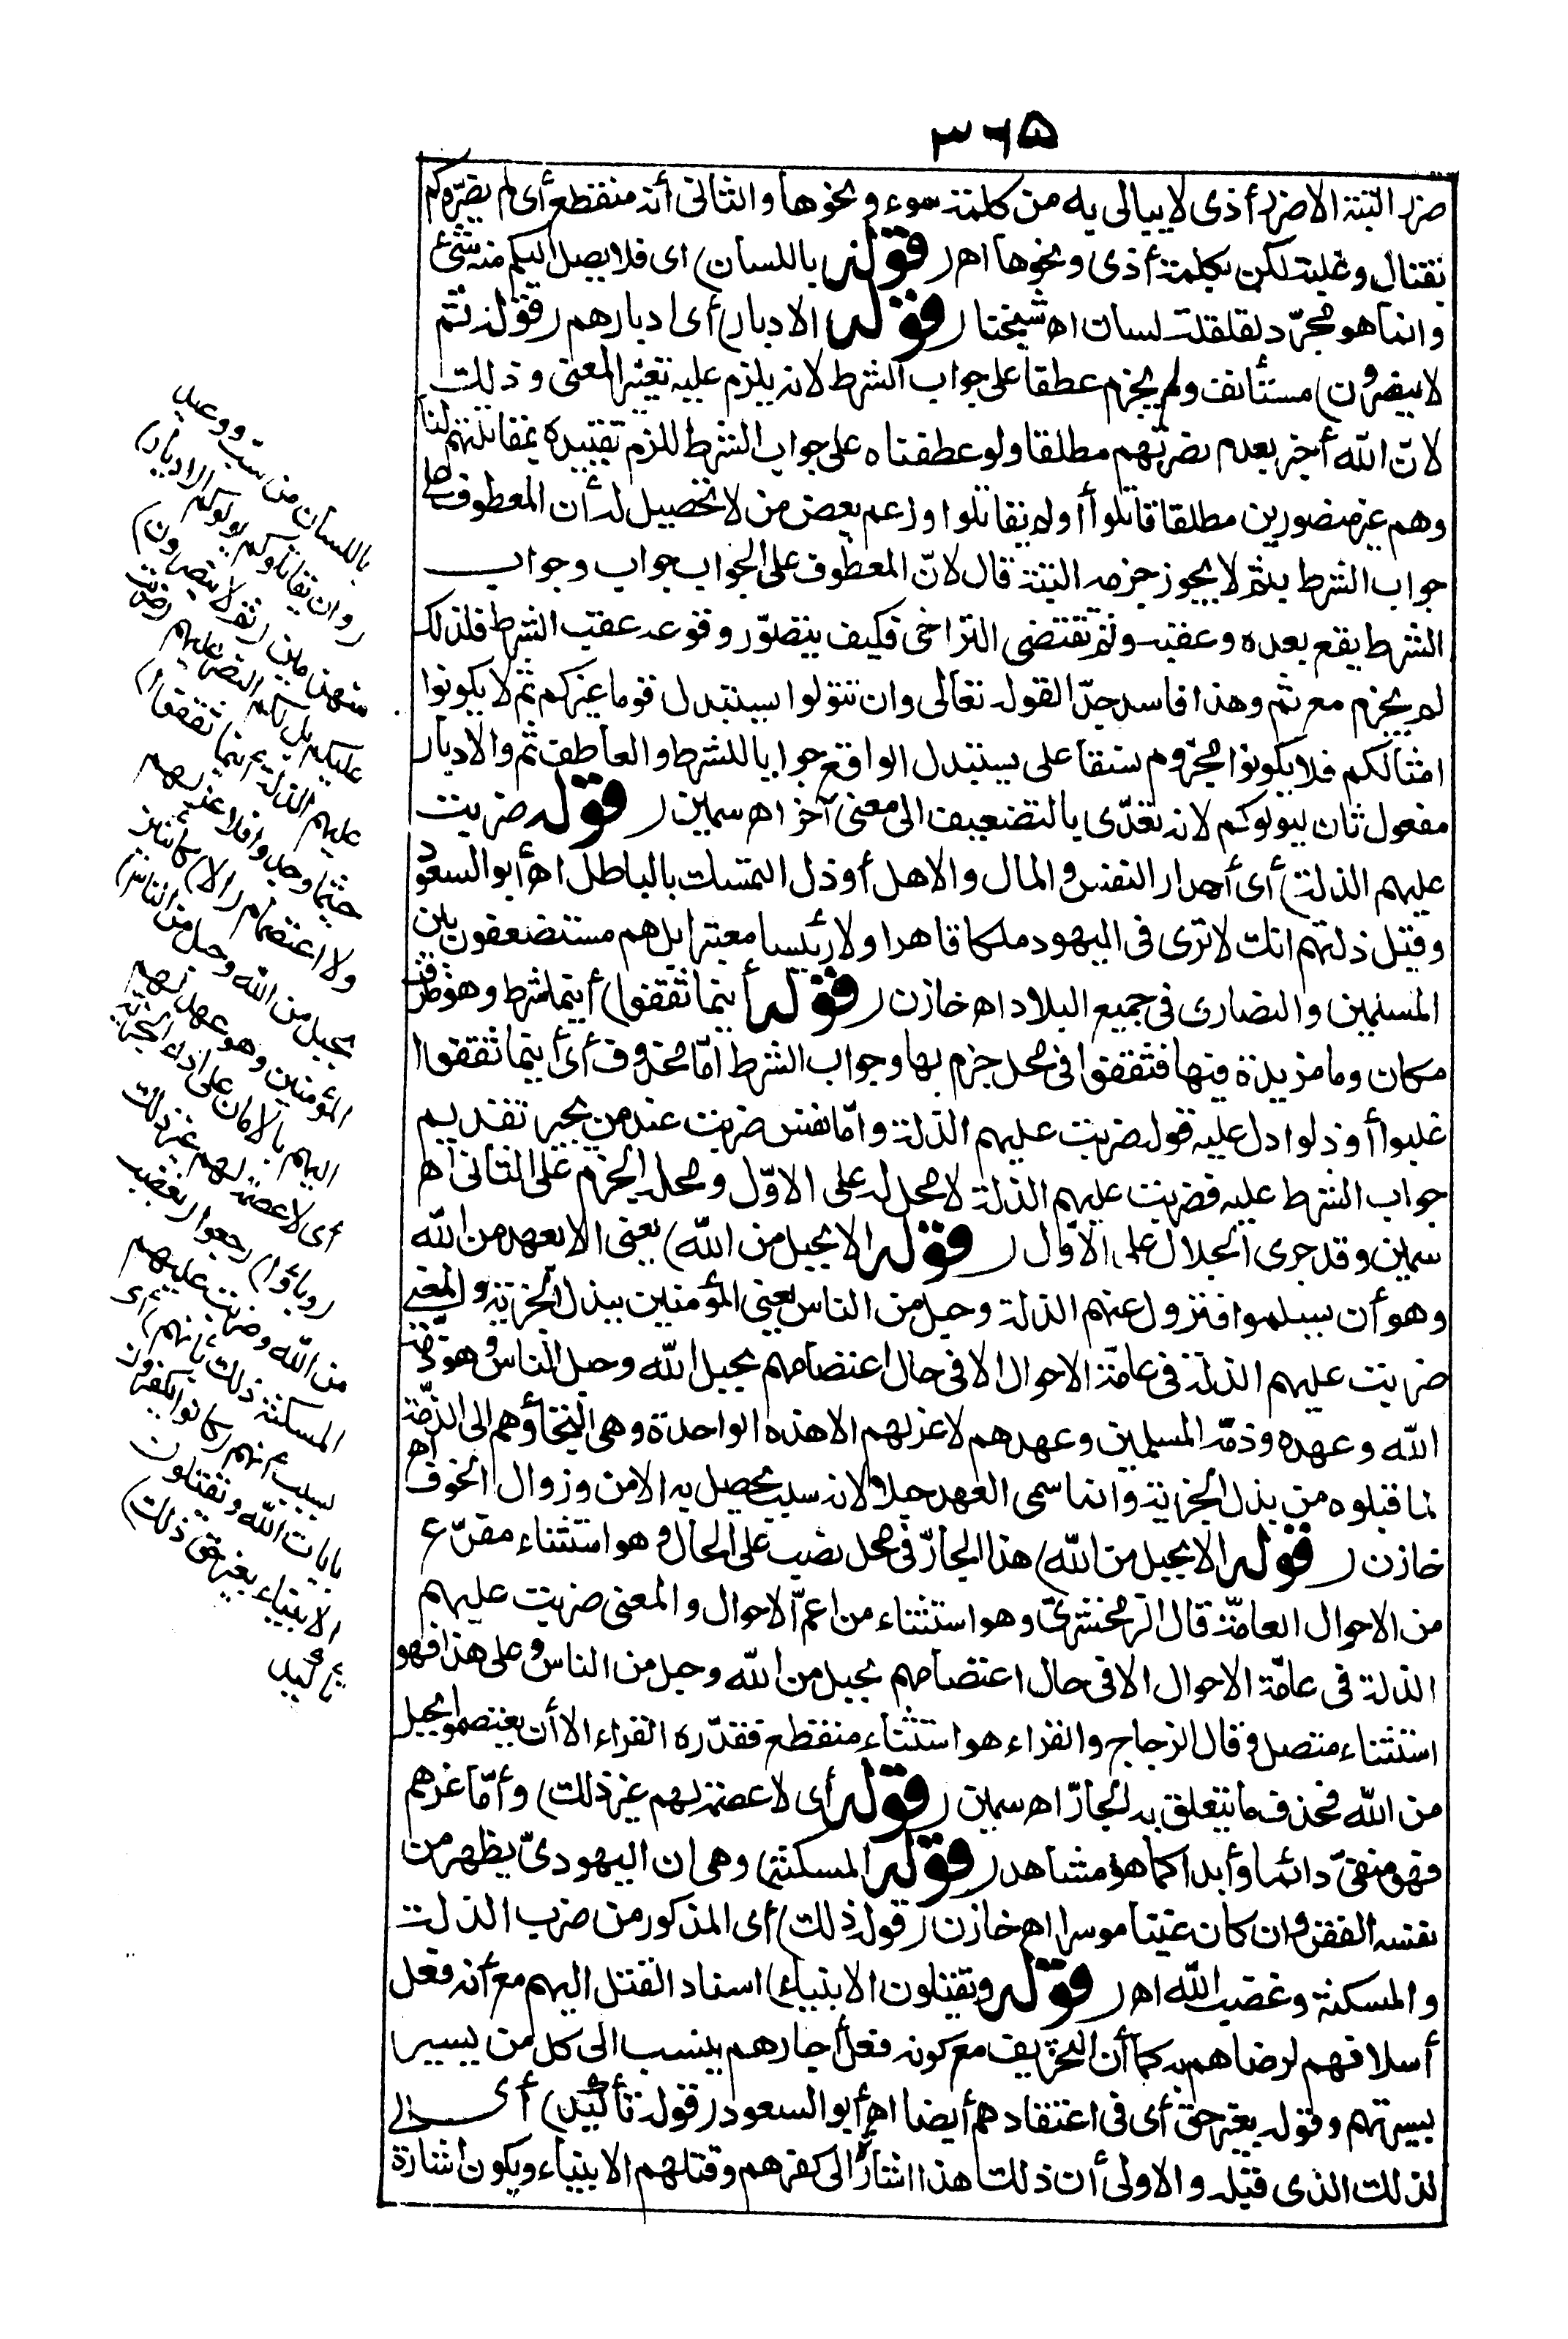 ٣٦٥
ضرر البتة الا ضرر أذى لا يبالى به من كلمة سوء ونحوها والثانى أنه منقطع أى لم يضرّوكم
بقتال وغلبة لكن بكلمة أذى ونحوها اه (قوله باللسان) اى فلا يصل اليكم منه شئ
وانما هو مجرّد لقلقلة لسان اه شيخنا (قوله الادبار) أى ادبارهم (قوله ثم
لا ينصرون) مستأنف ولم يجزم عطفا على جواب الشرط لانه يلزم عليه تغير المعنى وذلك
لانّ الله أخبر بعدم نصرتهم مطلقا ولو عطفناه على جواب الشرط للزم تقييده بمقاتلتهم لنا
وهم غير منصورين مطلقا قاتلوا أو لم يقاتلوا وزعم بعض من لا تحصيل له أن المعطوف على
جواب الشرط بثم لا يجوز جزمه البتة قال لانّ المعطوف على الجواب جواب وجواب
الشرط يقع بعده وعقبه وثم تقتضى التراخى فكيف يتصوّر وقوعه عقب الشرط فلذلك
لم يجزم مع ثم وهذا فاسد جدّا لقوله تعالى وان تتولوا يستبدل قوما غيركم ثم لا يكونوا
امثالكم فلا يكونوا مجزوم نسقا على يستبدل الواقع جوابا للشرط والعاطف ثم والادبار
مفعول ثان ليولوكم لانه تعدّى بالتضعيف الى معنى آخر اه سمين (قوله ضربت
عليهم الذلة) أى أهدار النفس والمال والاهل أو ذل التمسك بالباطل اه أبو السعود
وقيل ذلتهم انك لا ترى فى اليهود ملكا قاهرا ولا رئيسا معتبرا بل هم مستضعفون بين
المسلمين والنصارى فى جميع البلاد اه خازن (قوله أينما ثقفوا) أينما شرط وهو ظرف
مكان وما مزيدة فيها فثقفوا فى محل جزم بها وجواب الشرط امّا محذوف أى أينما ثقفوا
غلبوا أو ذلوا دل عليه قوله ضربت عليهم الذلة وامّا نفس ضربت عند من يجيز تقديم
جواب الشرط عليه فضربت عليهم الذلة لا محل له على الاوّل ومحله الجزم على الثانى اه
سمين وقد جرى الجلال على الاوّل (قوله الا بحبل من الله) يعنى الا بعهد من الله
وهو أن يسلموا فتزول عنهم الذلة وحبل من الناس يعنى المؤمنين ببذل الجزية والمعنى
ضربت عليهم الذلة فى عامّة الاحوال الا فى حال اعتصامهم بحبل الله وحبل الناس وهو ذمّة
الله وعهده وذمّة المسلمين وعهدهم لا عز لهم الا هذه الواحدة وهى التجاؤهم الى الذمّة
لما قبلوه من بذل الجزية وانما سمى العهد حبلا لانه سبب يحصل به الامن وزوال الخوف اه
خازن (قوله الا بحبل من الله) هذا الجارّ فى محل نصب على الحال وهو استثناء مفرّغ
من الاحوال العامّة قال الزمخشرىّ وهو استثناء من اعمّ الاحوال والمعنى ضربت عليهم
الذلة فى عامّة الاحوال الا فى حال اعتصامهم بحبل من الله وحبل من الناس وعلى هذا فهو
استثناء متصل وقال الزجاج والفراء هو استثناء منقطع فقدّره الفراء الا أن يعتصموا بحبل
من الله فحذف ما يتعلق به الجارّ اه سمين (قوله أى لا عصمة لهم غير ذلك) وأمّا عزهم
فهو منفىّ دائما وأبدا كما هو مشاهد (قوله المسكنة) وهى ان اليهودىّ يظهر من
نفسه الفقر وان كان غنيا موسرا اه خازن (قوله ذلك) أى المذكور من ضرب الذلة
والمسكنة وغضب الله اه (قوله ويقتلون الانبياء) اسناد القتل اليهم مع أنه فعل
أسلافهم لرضاهم به كما أن التحريف مع كونه فعل أحبارهم ينسب الى كل من يسير
بسيرتهم وقوله بغير حق أى فى اعتقادهم أيضا اه أبو السعود (قوله تأكيد) أى
لذلك الذى قبله والاولى أن ذلك هذا اشارة الى كفرهم وقتلهم الانبياء ويكون اشارة
باللسان من سب ووعيد
(وان يقاتلوكم يولوكم الادبار)
منهزمين (ثم لا ينصرون)
عليكم بل لكم النصر عليهم (ضربت
عليهم الذلة أينما ثقفوا)
حيثما وجدوا فلا عز لهم
ولا اعتصام (الا) كائنين
بحبل من الله وحبل من الناس)
المؤمنين وهو عهدهم
اليهم بالامان على اداء الجزية
أى لا عصمة لهم غير ذلك
(وباؤا) رجعوا (بغضب
من الله وضربت عليهم
المسكنة ذلك بأنهم) أى
بسبب أنهم (كانوا يكفرون
بايات الله ويقتلون
الانبياء بغير حق ذلك)
تأكيد